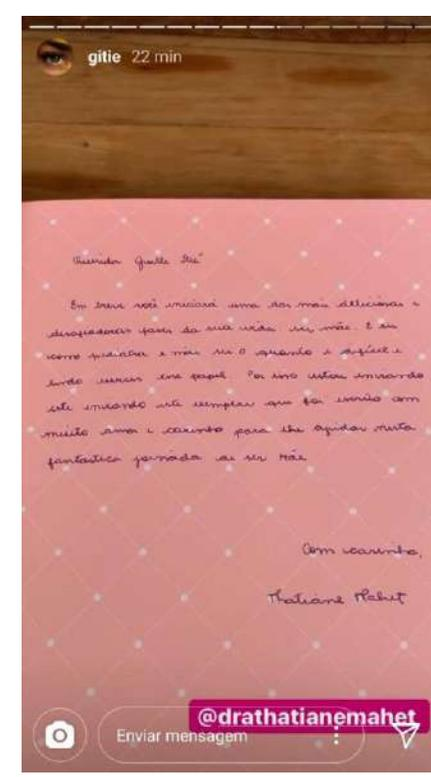 gitie 22 min
Querida Giselle Itié
Em breve você iniciará uma das mais deliciosas e
desafiadoras fases da sua vida ser mãe. E eu
como pediatra e mãe sei o quanto é difícil e
lindo exercer esse papel. Por isso estou enviando
este enviando este exemplar que foi escrito com
muito amor e carinho para lhe ajudar nesta
fantástica jornada de ser Mãe
Com carinho,
Thatiane Mahet
@drathatianemahet
Enviar mensagem